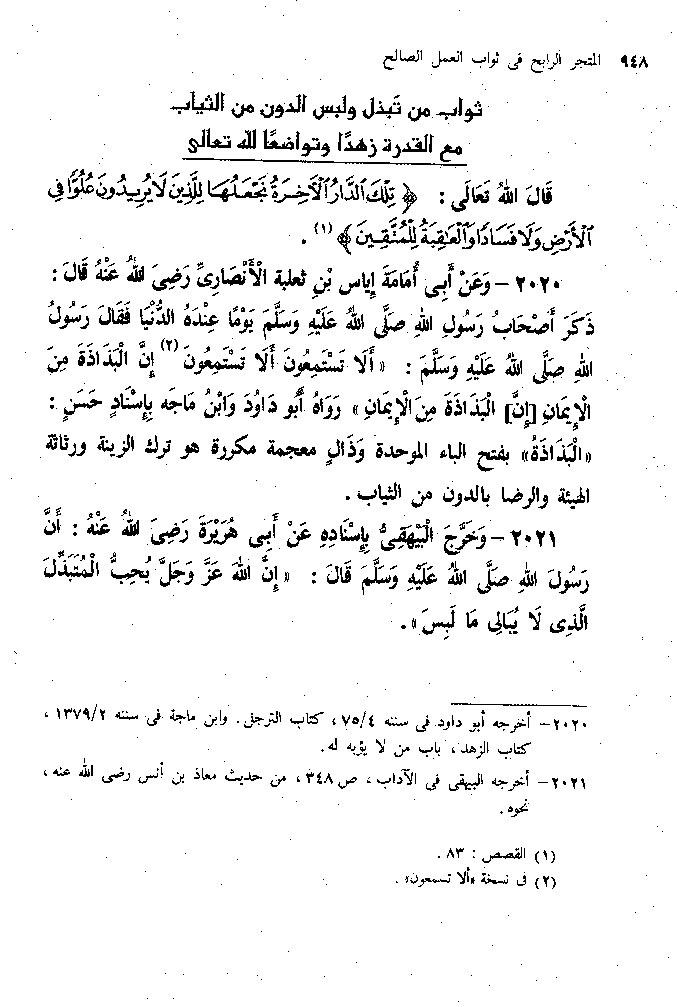 ٩٤٨ المتجر الرابح فى ثواب العمل الصالح
ثواب من تَبذل ولبس الدون من الثياب
مع القدرة زهدًا وتواضعًا لله تعالى
قَالَ اللهُ تَعَالَى : ﴿ تِلْكَ ٱلدَّارُ ٱلْآخِرَةُ نَجْعَلُهَا لِلَّذِينَ لَا يُرِيدُونَ عُلُوًّا فِى
ٱلْأَرْضِ وَلَا فَسَادًا وَٱلْعَاقِبَةُ لِلْمُتَّقِينَ ﴾ (١) .
٢٠٢٠ – وَعَنْ أَبِى أُمَامَةَ إِيَاسِ بْنِ ثعلبة الْأَنْصَارِىِّ رَضِىَ اللهُ عَنْهُ قَالَ :
ذَكَرَ أَصْحَابُ رَسُولِ اللهِ صَلَّى اللهُ عَلَيْهِ وَسَلَّمَ يَوْمًا عِنْدَهُ الدُّنْيَا فَقَالَ رَسُولُ
اللهِ صَلَّى اللهُ عَلَيْهِ وَسَلَّمَ : « أَلَا تَسْتَمِعُونَ أَلَا تَسْتَمِعُونَ (٢) إِنَّ الْبَذَاذَةَ مِنَ
الْإِيمَانِ [إِنَّ] الْبَذَاذَةَ مِنَ الْإِيمَانِ » رَوَاهُ أَبُو دَاوُدَ وَابْنُ مَاجَه بِإِسْنَادٍ حَسَنٍ :
«الْبَذَاذَةُ» بفتح الباء الموحدة وَذَالٍ معجمة مكررة هو ترك الزينة ورثاثة
الهيئة والرضا بالدون من الثياب .
٢٠٢١ – وَخَرَّجَ الْبَيْهَقِىُّ بِإِسْنَادِهِ عَنْ أَبِى هُرَيْرَةَ رَضِىَ اللهُ عَنْهُ : أَنَّ
رَسُولَ اللهِ صَلَّى اللهُ عَلَيْهِ وَسَلَّمَ قَالَ : « إِنَّ اللهَ عَزَّ وَجَلَّ يُحِبُّ الْمُتَبَذِّلَ
الَّذِى لَا يُبَالِى مَا لَبِسَ » .
٢٠٢٠ – أخرجه أبو داود فى سننه ٧٥/٤ ، كتاب الترجل. وابن ماجة فى سننه ١٣٧٩/٢ ،
كتاب الزهد ، باب من لا يؤبه له .
٢٠٢١ – أخرجه البيهقى فى الآداب ، ص ٣٤٨ ، من حديث معاذ بن أنس رضى الله عنه ،
نحوه .
(١) القصص : ٨٣ .
(٢) فى نسخة «ألا تسمعون» .